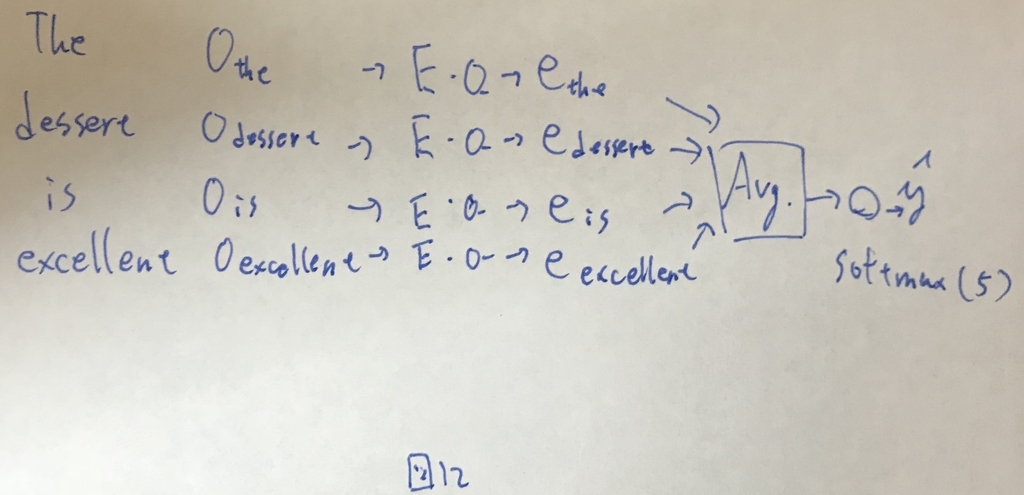 The O the → E · O → e the
dessert O dessert → E · O → e dessert → Avg. → O → ŷ
is O is → E · O → e is →
excellent O excellent → E · O → e excellent
softmax (5)
12